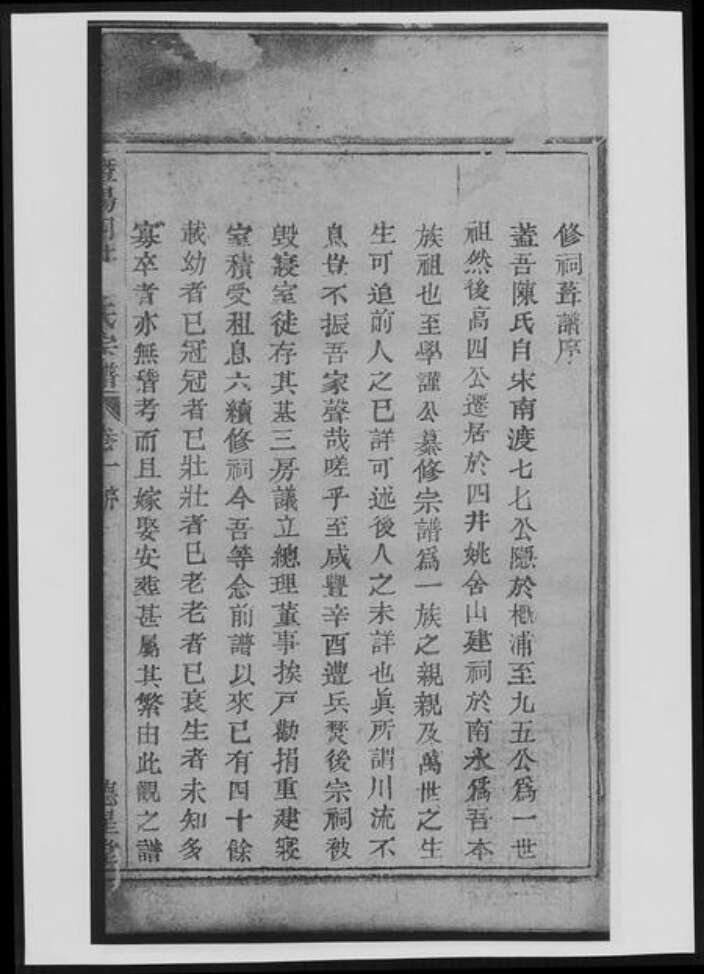 修祠葺譜序
蓋吾陳氏自宋南渡七七公隱於楓浦至九五公爲一世
祖然後高四公遷居於四井姚舍山建祠於南永爲吾本
族祖也至學謹公慕修宗譜爲一族之親親及萬世之生
生可追前人之已詳可述後人之未詳也眞所謂川流不
息豈不振吾家聲哉嗟乎至咸豐辛酉遭兵燹後宗祠被
毁寢室徒存其基三房議立總理董事挨戸勸捐重建寢
室積受租息六續修祠今吾等念前譜以來已有四十餘
載幼者已冠冠者已壯壯者已老老者已衰生者未知多
寡卒者亦無稽考而且嫁娶安葬甚屬其繁由此觀之譜
氏宗譜 卷一 德星堂